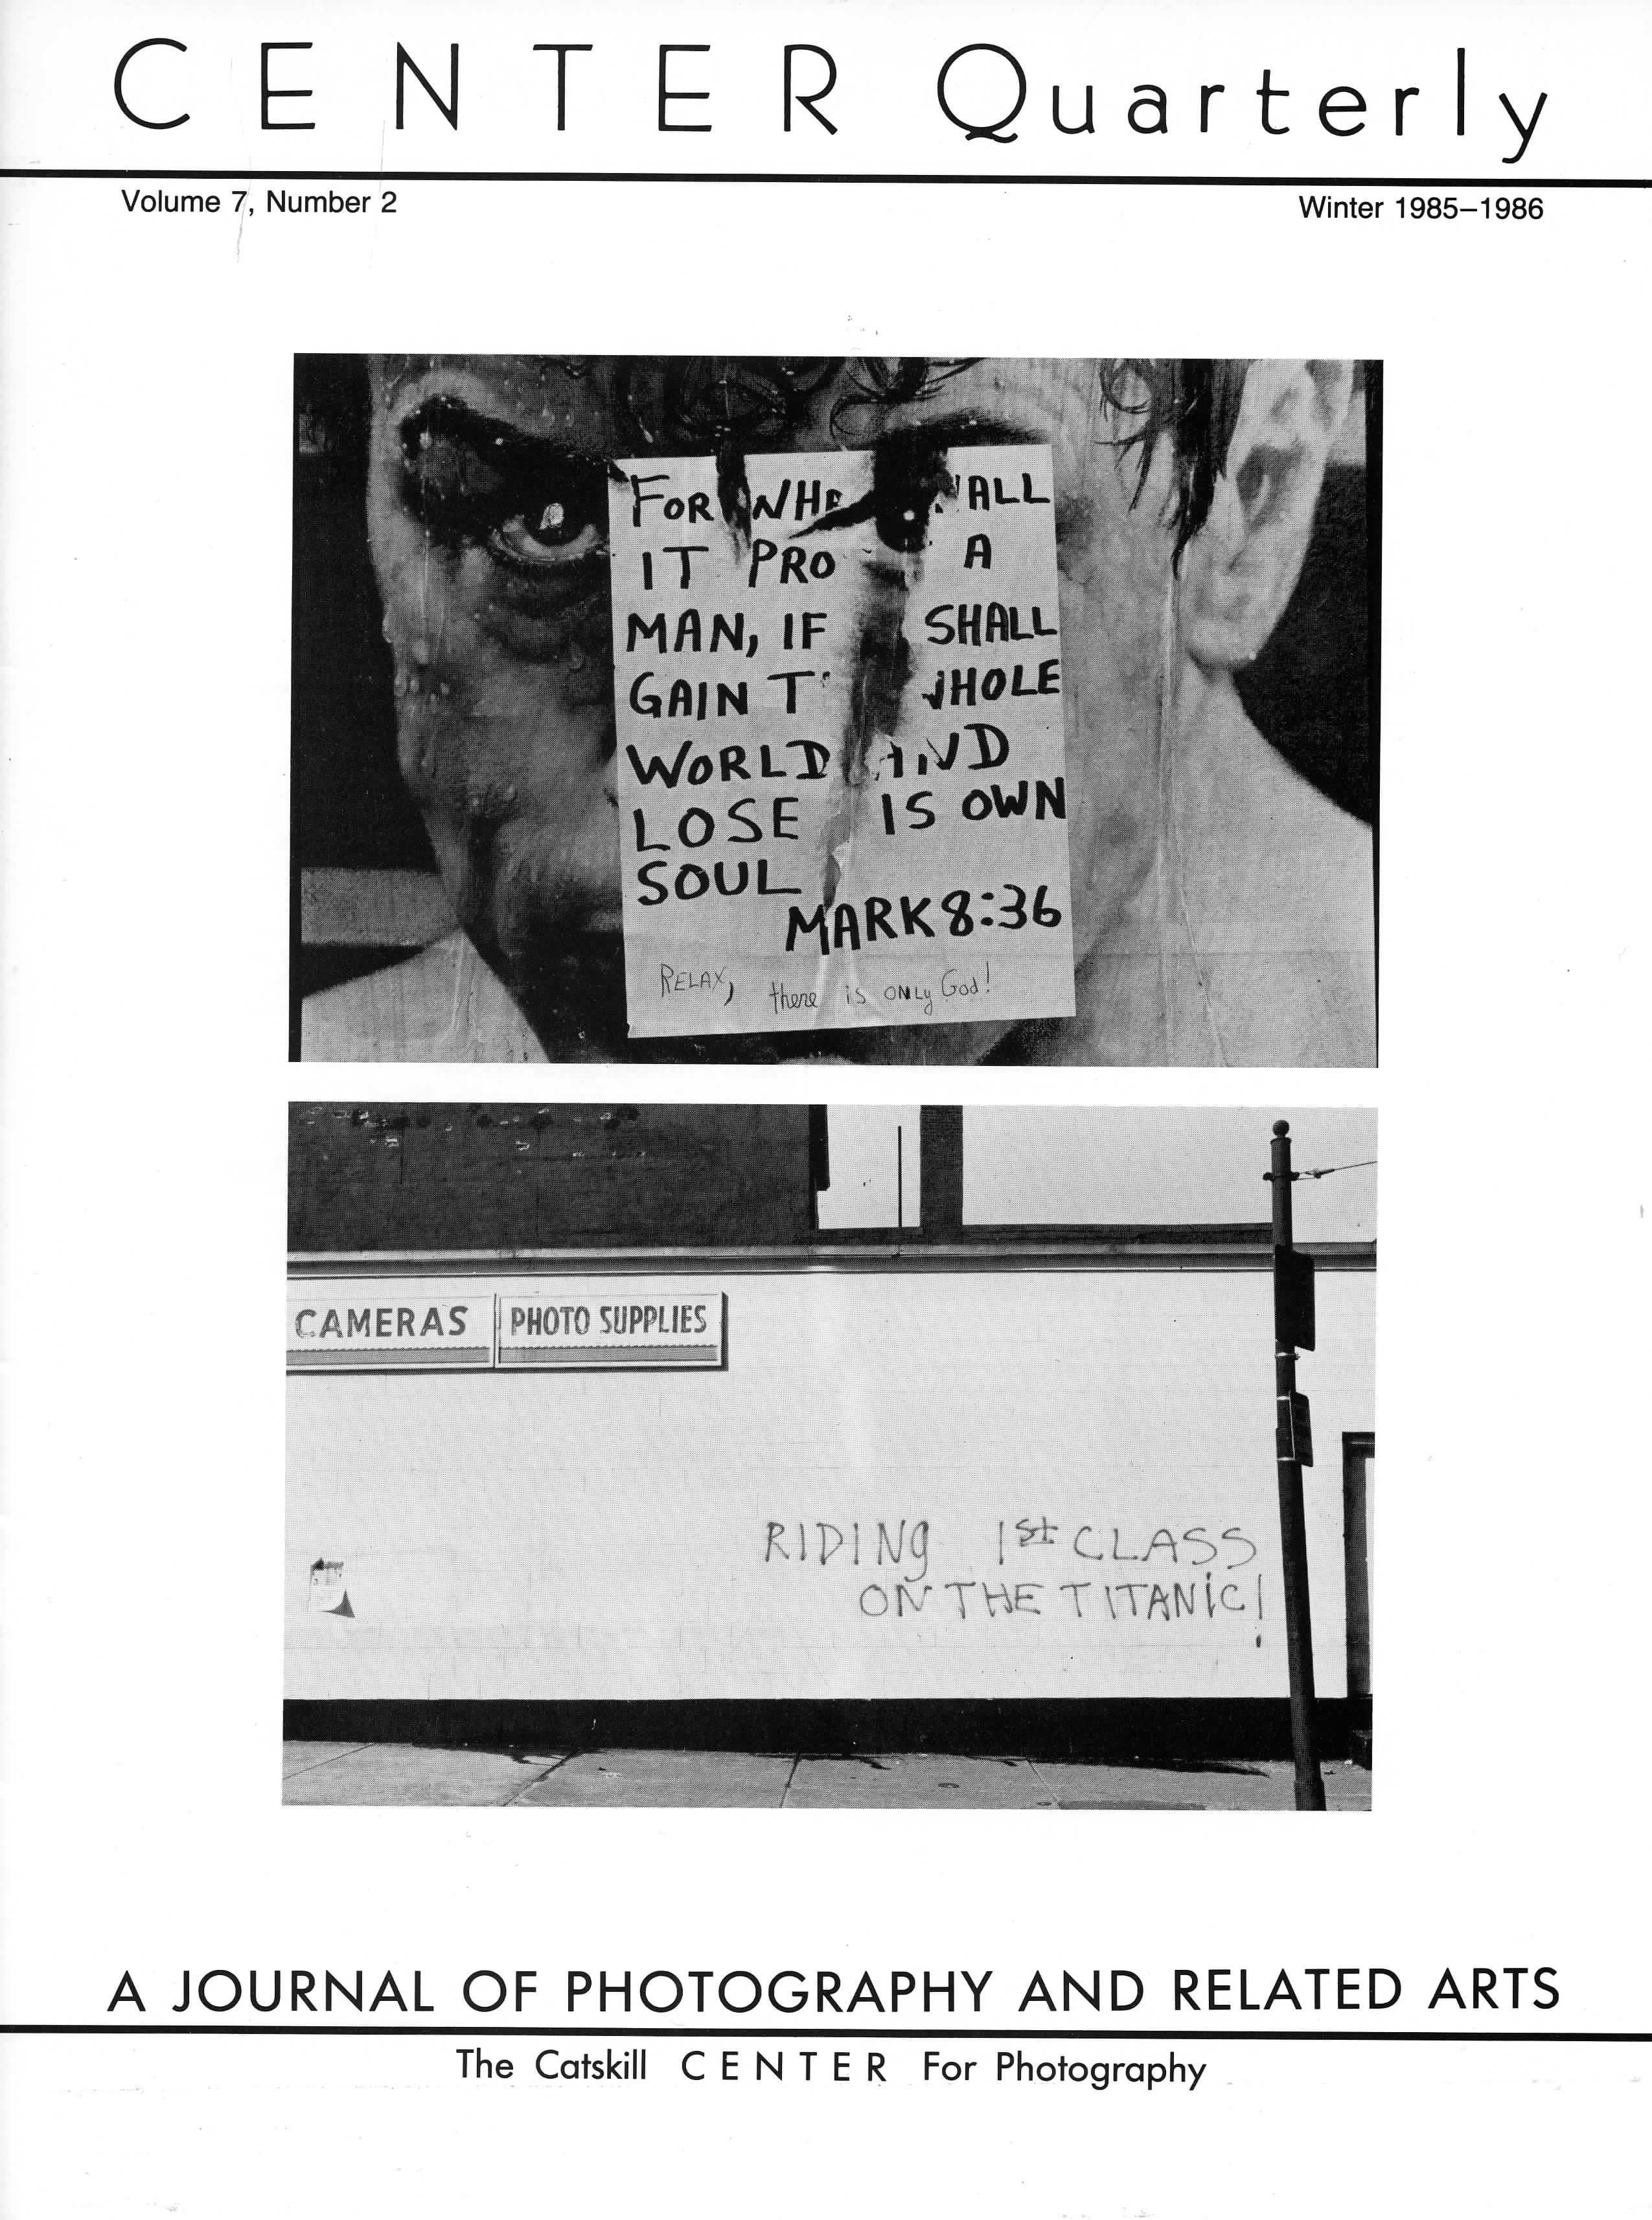 CENTER Quarterly
Volume 7, Number 2
Winter 1985–1986
FOR WHA ALL
IT PRO A
MAN, IF SHALL
GAIN T WHOLE
WORLD AND
LOSE IS OWN
SOUL
MARK 8:36
RELAX, there is ONLy God!
CAMERAS
PHOTO SUPPLIES
RIDINg 1st CLASS
ON THE TITANiC!
A JOURNAL OF PHOTOGRAPHY AND RELATED ARTS
The Catskill CENTER For Photography